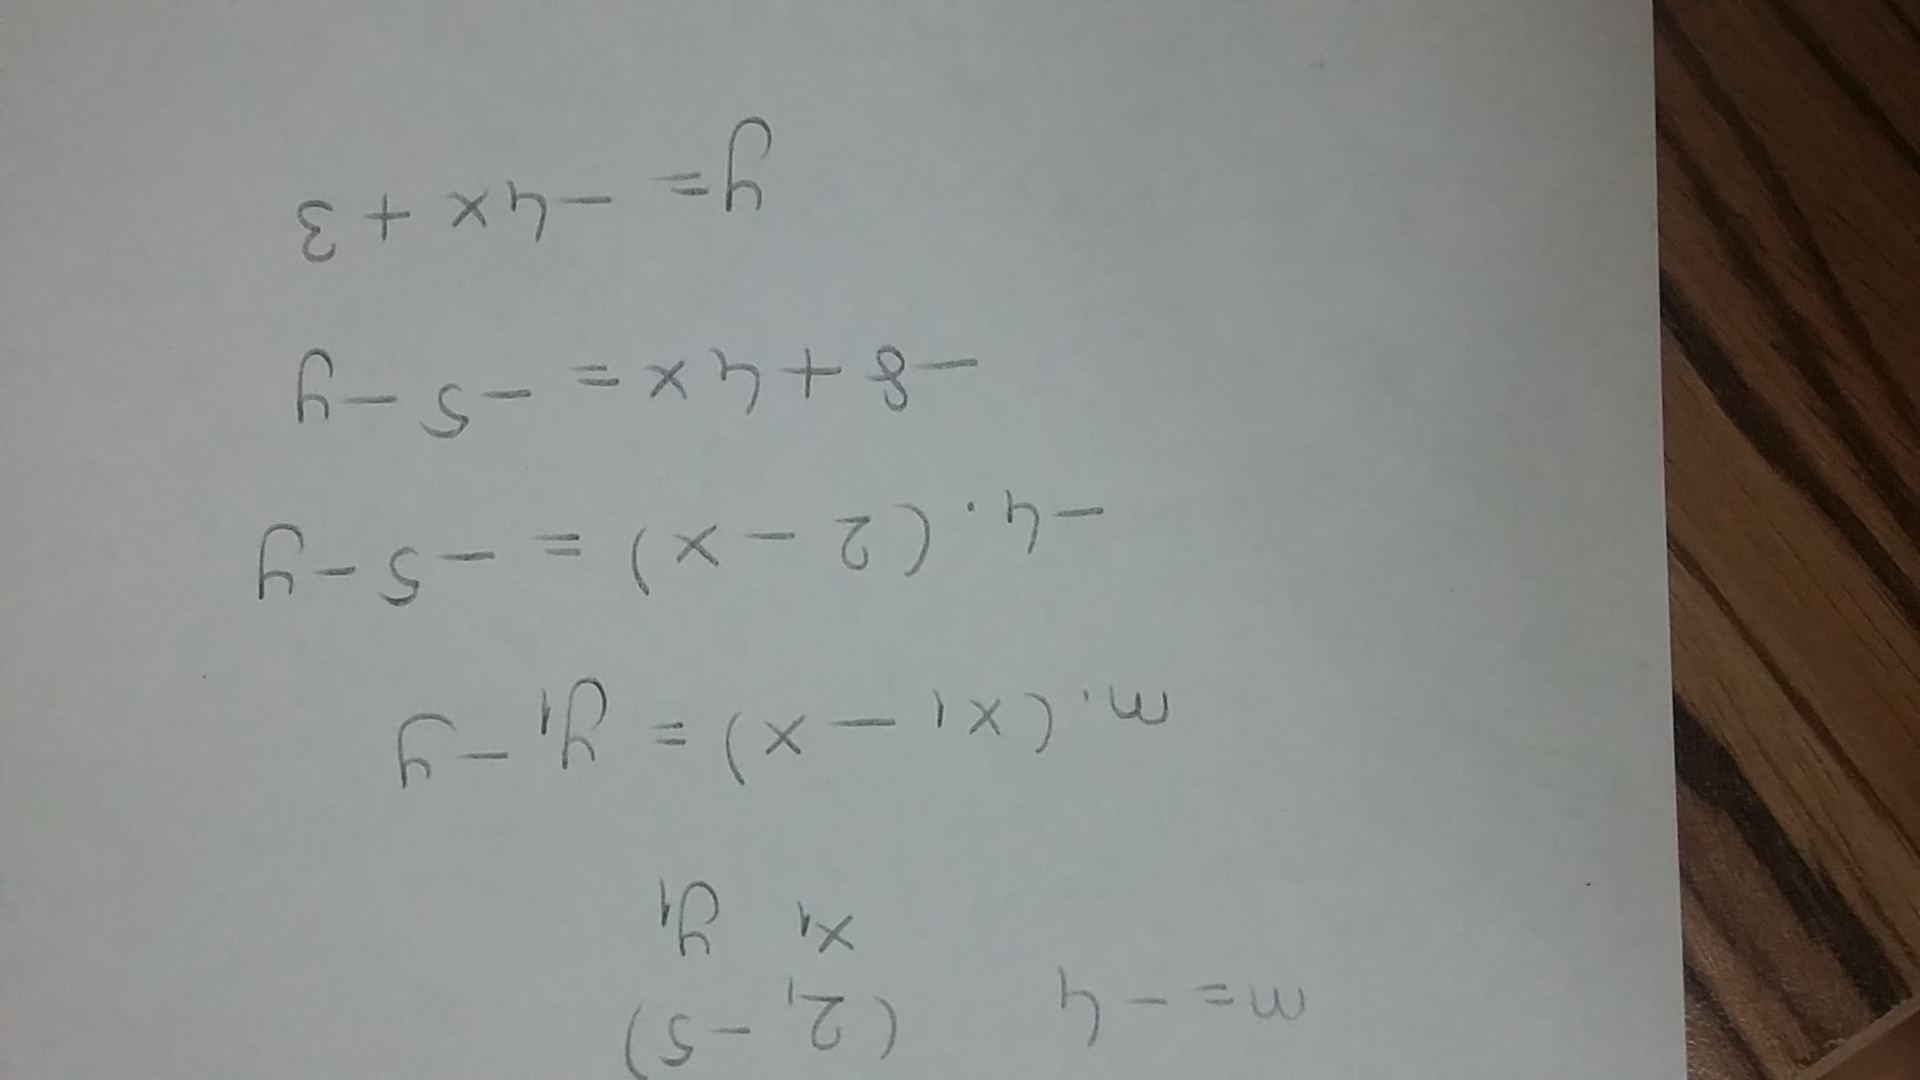 m = -4 (2, -5)
x₁ y₁
m. (x₁ - x) = y₁ - y
-4. (2 - x) = -5 - y
-8 + 4x = -5 - y
y = -4x + 3